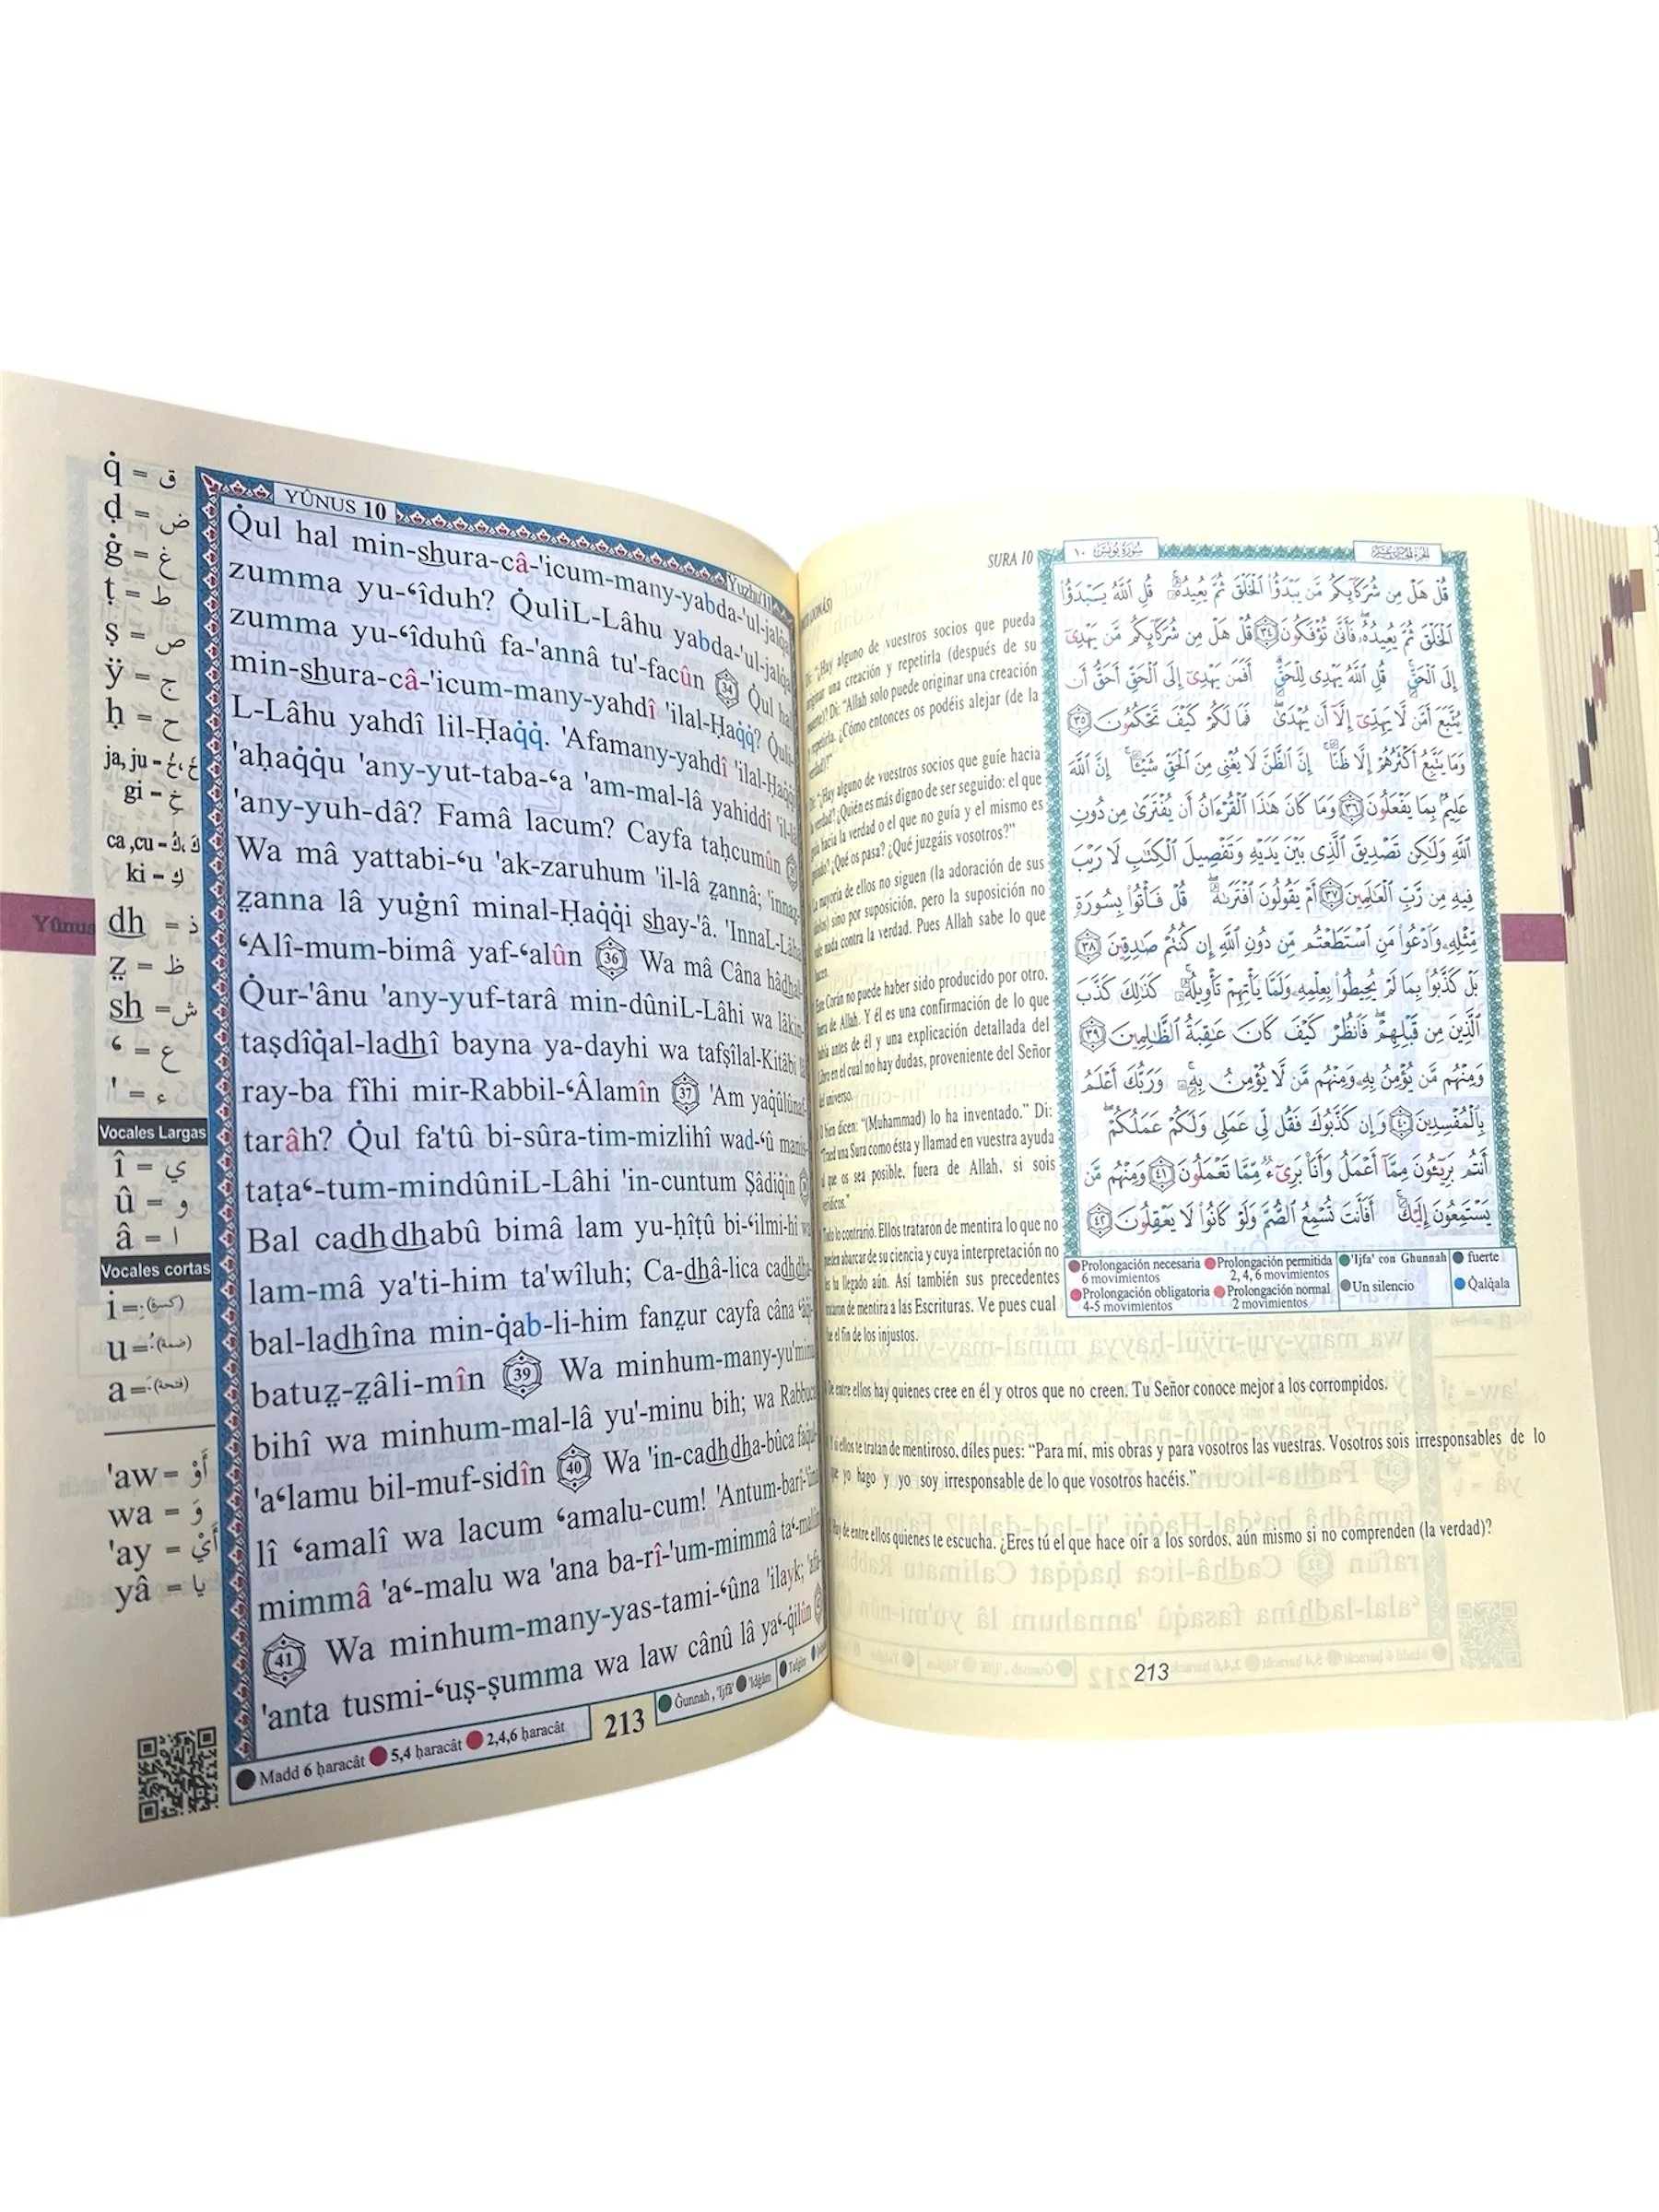 q̇ = ق
ḍ = ض
ġ = غ
ṭ = ط
ṣ = ص
ÿ = ج
ḥ = ح
ja, ju - خَ، خُ
gi - خِ
ca ,cu - كَ، كُ
ki - كِ
dh = ذ
ẓ = ظ
sh = ش
ʻ = ع
' = ء
Vocales Largas
î = ي
û = و
â = ا
Vocales cortas
i = (كسرة)
u = (ضمة)
a = (فتحة)
'aw = أَوْ
wa = وَ
'ay = أَيْ
yâ = يا
Yûnus
YÛNUS 10
Yuzhu'11
Q̇ul hal min-shura-câ-'icum-many-yabda-'ul-jalq̇a
zumma yu-ʻîduh? Q̇uliL-Lâhu yabda-'ul-jalq̇a
zumma yu-ʻîduhû fa-'annâ tu'-facûn 34 Q̇ul hal
min-shura-câ-'icum-many-yahdî 'ilal-Ḥaq̇q̇? Q̇uli-
L-Lâhu yahdî lil-Ḥaq̇q̇. 'Afamany-yahdî 'ilal-Ḥaq̇q̇i
'aḥaq̇q̇u 'any-yut-taba-ʻa 'am-mal-lâ yahiddî 'il-lâ
'any-yuh-dâ? Famâ lacum? Cayfa taḥcumûn
Wa mâ yattabi-ʻu 'ak-zaruhum 'il-lâ ẓannâ; 'innaẓ-
ẓanna lâ yuġnî minal-Ḥaq̇q̇i shay-'â. 'InnaL-Lâha
ʻAlî-mum-bimâ yaf-ʻalûn 36 Wa mâ Câna hâdhal-
Q̇ur-'ânu 'any-yuf-tarâ min-dûniL-Lâhi wa lâkin-
taṣdîq̇al-ladhî bayna ya-dayhi wa tafṣîlal-Kitâbi lâ
ray-ba fîhi mir-Rabbil-ʻÂlamîn 37 'Am yaq̇ûlûnaf-
tarâh? Q̇ul fa'tû bi-sûra-tim-mizlihî wad-ʻû manis-
taṭaʻ-tum-mindûniL-Lâhi 'in-cuntum Ṣâdiq̇în
Bal cadhdhabû bimâ lam yu-ḥîṭû bi-ʻilmi-hî wa
lam-mâ ya'ti-him ta'wîluh; Ca-dhâ-lica cadhdha-
bal-ladhîna min-q̇ab-li-him fanẓur cayfa câna ʻâq̇i-
batuẓ-ẓâli-mîn 39 Wa minhum-many-yu'minu
bihî wa minhum-mal-lâ yu'-minu bih; wa Rabbuca
'aʻlamu bil-muf-sidîn 40 Wa 'in-cadhdha-bûca faq̇ul-
lî ʻamalî wa lacum ʻamalu-cum! 'Antum-barî-'ûna
mimmâ 'aʻ-malu wa 'ana ba-rî-'um-mimmâ taʻ-malûn
41 Wa minhum-many-yas-tami-ʻûna 'ilayk; 'afa-
'anta tusmi-ʻuṣ-ṣumma wa law cânû lâ yaʻ-q̇ilûn
Madd 6 ḥaracât 5,4 ḥaracât 2,4,6 ḥaracât
213
Ġunnah, 'Ijfâ' 'Idġâm Tafġîm
SURA 10
Di: “¿Hay alguno de vuestros socios que pueda
originar una creación y repetirla (después de su
muerte)? Di: “Allah solo puede originar una creación
y repetirla. ¿Cómo entonces os podéis alejar (de la
verdad)?”
Di: “¿Hay alguno de vuestros socios que guíe hacia
la verdad? ¿Quién es más digno de ser seguido: el que
guía hacia la verdad o el que no guía y el mismo es
guiado? ¿Qué os pasa? ¿Qué juzgáis vosotros?”
La mayoría de ellos no siguen (la adoración de sus
ídolos) sino por suposición, pero la suposición no
vale nada contra la verdad. Pues Allah sabe lo que
hacen.
Este Corán no puede haber sido producido por otro,
fuera de Allah. Y él es una confirmación de lo que
había antes de él y una explicación detallada del
Libro en el cual no hay dudas, proveniente del Señor
del universo.
O bien dicen: “(Muhammad) lo ha inventado.” Di:
“Traed una Sura como ésta y llamad en vuestra ayuda
a que os sea posible, fuera de Allah, si sois
verídicos.”
Todo lo contrario. Ellos trataron de mentira lo que no
pueden abarcar de su ciencia y cuya interpretación no
les ha llegado aún. Así también sus precedentes
trataron de mentira a las Escrituras. Ve pues cual
fue el fin de los injustos.
De entre ellos hay quienes cree en él y otros que no creen. Tu Señor conoce mejor a los corrompidos.
Y si ellos te tratan de mentiroso, díles pues: “Para mí, mis obras y para vosotros las vuestras. Vosotros sois irresponsables de lo
que yo hago y yo soy irresponsable de lo que vosotros hacéis.”
Hay de entre ellos quienes te escucha. ¿Eres tú el que hace oír a los sordos, aún mismo si no comprenden (la verdad)?
213
سُورَةُ يُونُسَ ١٠
قُلْ هَلْ مِن شُرَكَآئِكُم مَّن يَبْدَؤُا۟ ٱلْخَلْقَ ثُمَّ يُعِيدُهُۥ ۚ قُلِ ٱللَّهُ يَبْدَؤُا۟
ٱلْخَلْقَ ثُمَّ يُعِيدُهُۥ ۖ فَأَنَّىٰ تُؤْفَكُونَ ٣٤ قُلْ هَلْ مِن شُرَكَآئِكُم مَّن يَهْدِىٓ
إِلَى ٱلْحَقِّ ۚ قُلِ ٱللَّهُ يَهْدِى لِلْحَقِّ ۗ أَفَمَن يَهْدِىٓ إِلَى ٱلْحَقِّ أَحَقُّ أَن
يُتَّبَعَ أَمَّن لَّا يَهِدِّىٓ إِلَّآ أَن يُهْدَىٰ ۖ فَمَا لَكُمْ كَيْفَ تَحْكُمُونَ ٣٥
وَمَا يَتَّبِعُ أَكْثَرُهُمْ إِلَّا ظَنًّا ۚ إِنَّ ٱلظَّنَّ لَا يُغْنِى مِنَ ٱلْحَقِّ شَيْـًٔا ۚ إِنَّ ٱللَّهَ
عَلِيمٌۢ بِمَا يَفْعَلُونَ ٣٦ وَمَا كَانَ هَٰذَا ٱلْقُرْءَانُ أَن يُفْتَرَىٰ مِن دُونِ
ٱللَّهِ وَلَٰكِن تَصْدِيقَ ٱلَّذِى بَيْنَ يَدَيْهِ وَتَفْصِيلَ ٱلْكِتَٰبِ لَا رَيْبَ
فِيهِ مِن رَّبِّ ٱلْعَٰلَمِينَ ٣٧ أَمْ يَقُولُونَ ٱفْتَرَىٰهُ ۖ قُلْ فَأْتُوا۟ بِسُورَةٍ
مِّثْلِهِۦ وَٱدْعُوا۟ مَنِ ٱسْتَطَعْتُم مِّن دُونِ ٱللَّهِ إِن كُنتُمْ صَٰدِقِينَ ٣٨
بَلْ كَذَّبُوا۟ بِمَا لَمْ يُحِيطُوا۟ بِعِلْمِهِۦ وَلَمَّا يَأْتِهِمْ تَأْوِيلُهُۥ ۚ كَذَٰلِكَ كَذَّبَ
ٱلَّذِينَ مِن قَبْلِهِمْ ۖ فَٱنظُرْ كَيْفَ كَانَ عَٰقِبَةُ ٱلظَّٰلِمِينَ ٣٩
وَمِنْهُم مَّن يُؤْمِنُ بِهِۦ وَمِنْهُم مَّن لَّا يُؤْمِنُ بِهِۦ ۚ وَرَبُّكَ أَعْلَمُ
بِٱلْمُفْسِدِينَ ٤٠ وَإِن كَذَّبُوكَ فَقُل لِّى عَمَلِى وَلَكُمْ عَمَلُكُمْ ۖ
أَنتُم بَرِيٓـُٔونَ مِمَّآ أَعْمَلُ وَأَنَا۠ بَرِىٓءٌ مِّمَّا تَعْمَلُونَ ٤١ وَمِنْهُم مَّن
يَسْتَمِعُونَ إِلَيْكَ ۚ أَفَأَنتَ تُسْمِعُ ٱلصُّمَّ وَلَوْ كَانُوا۟ لَا يَعْقِلُونَ ٤٢
Prolongación necesaria 6 movimientos
Prolongación permitida 2, 4, 6 movimientos
'Ijfa' con Ghunnah
fuerte
Prolongación obligatoria 4-5 movimientos
Prolongación normal 2 movimientos
Un silencio
Q̇alq̇ala